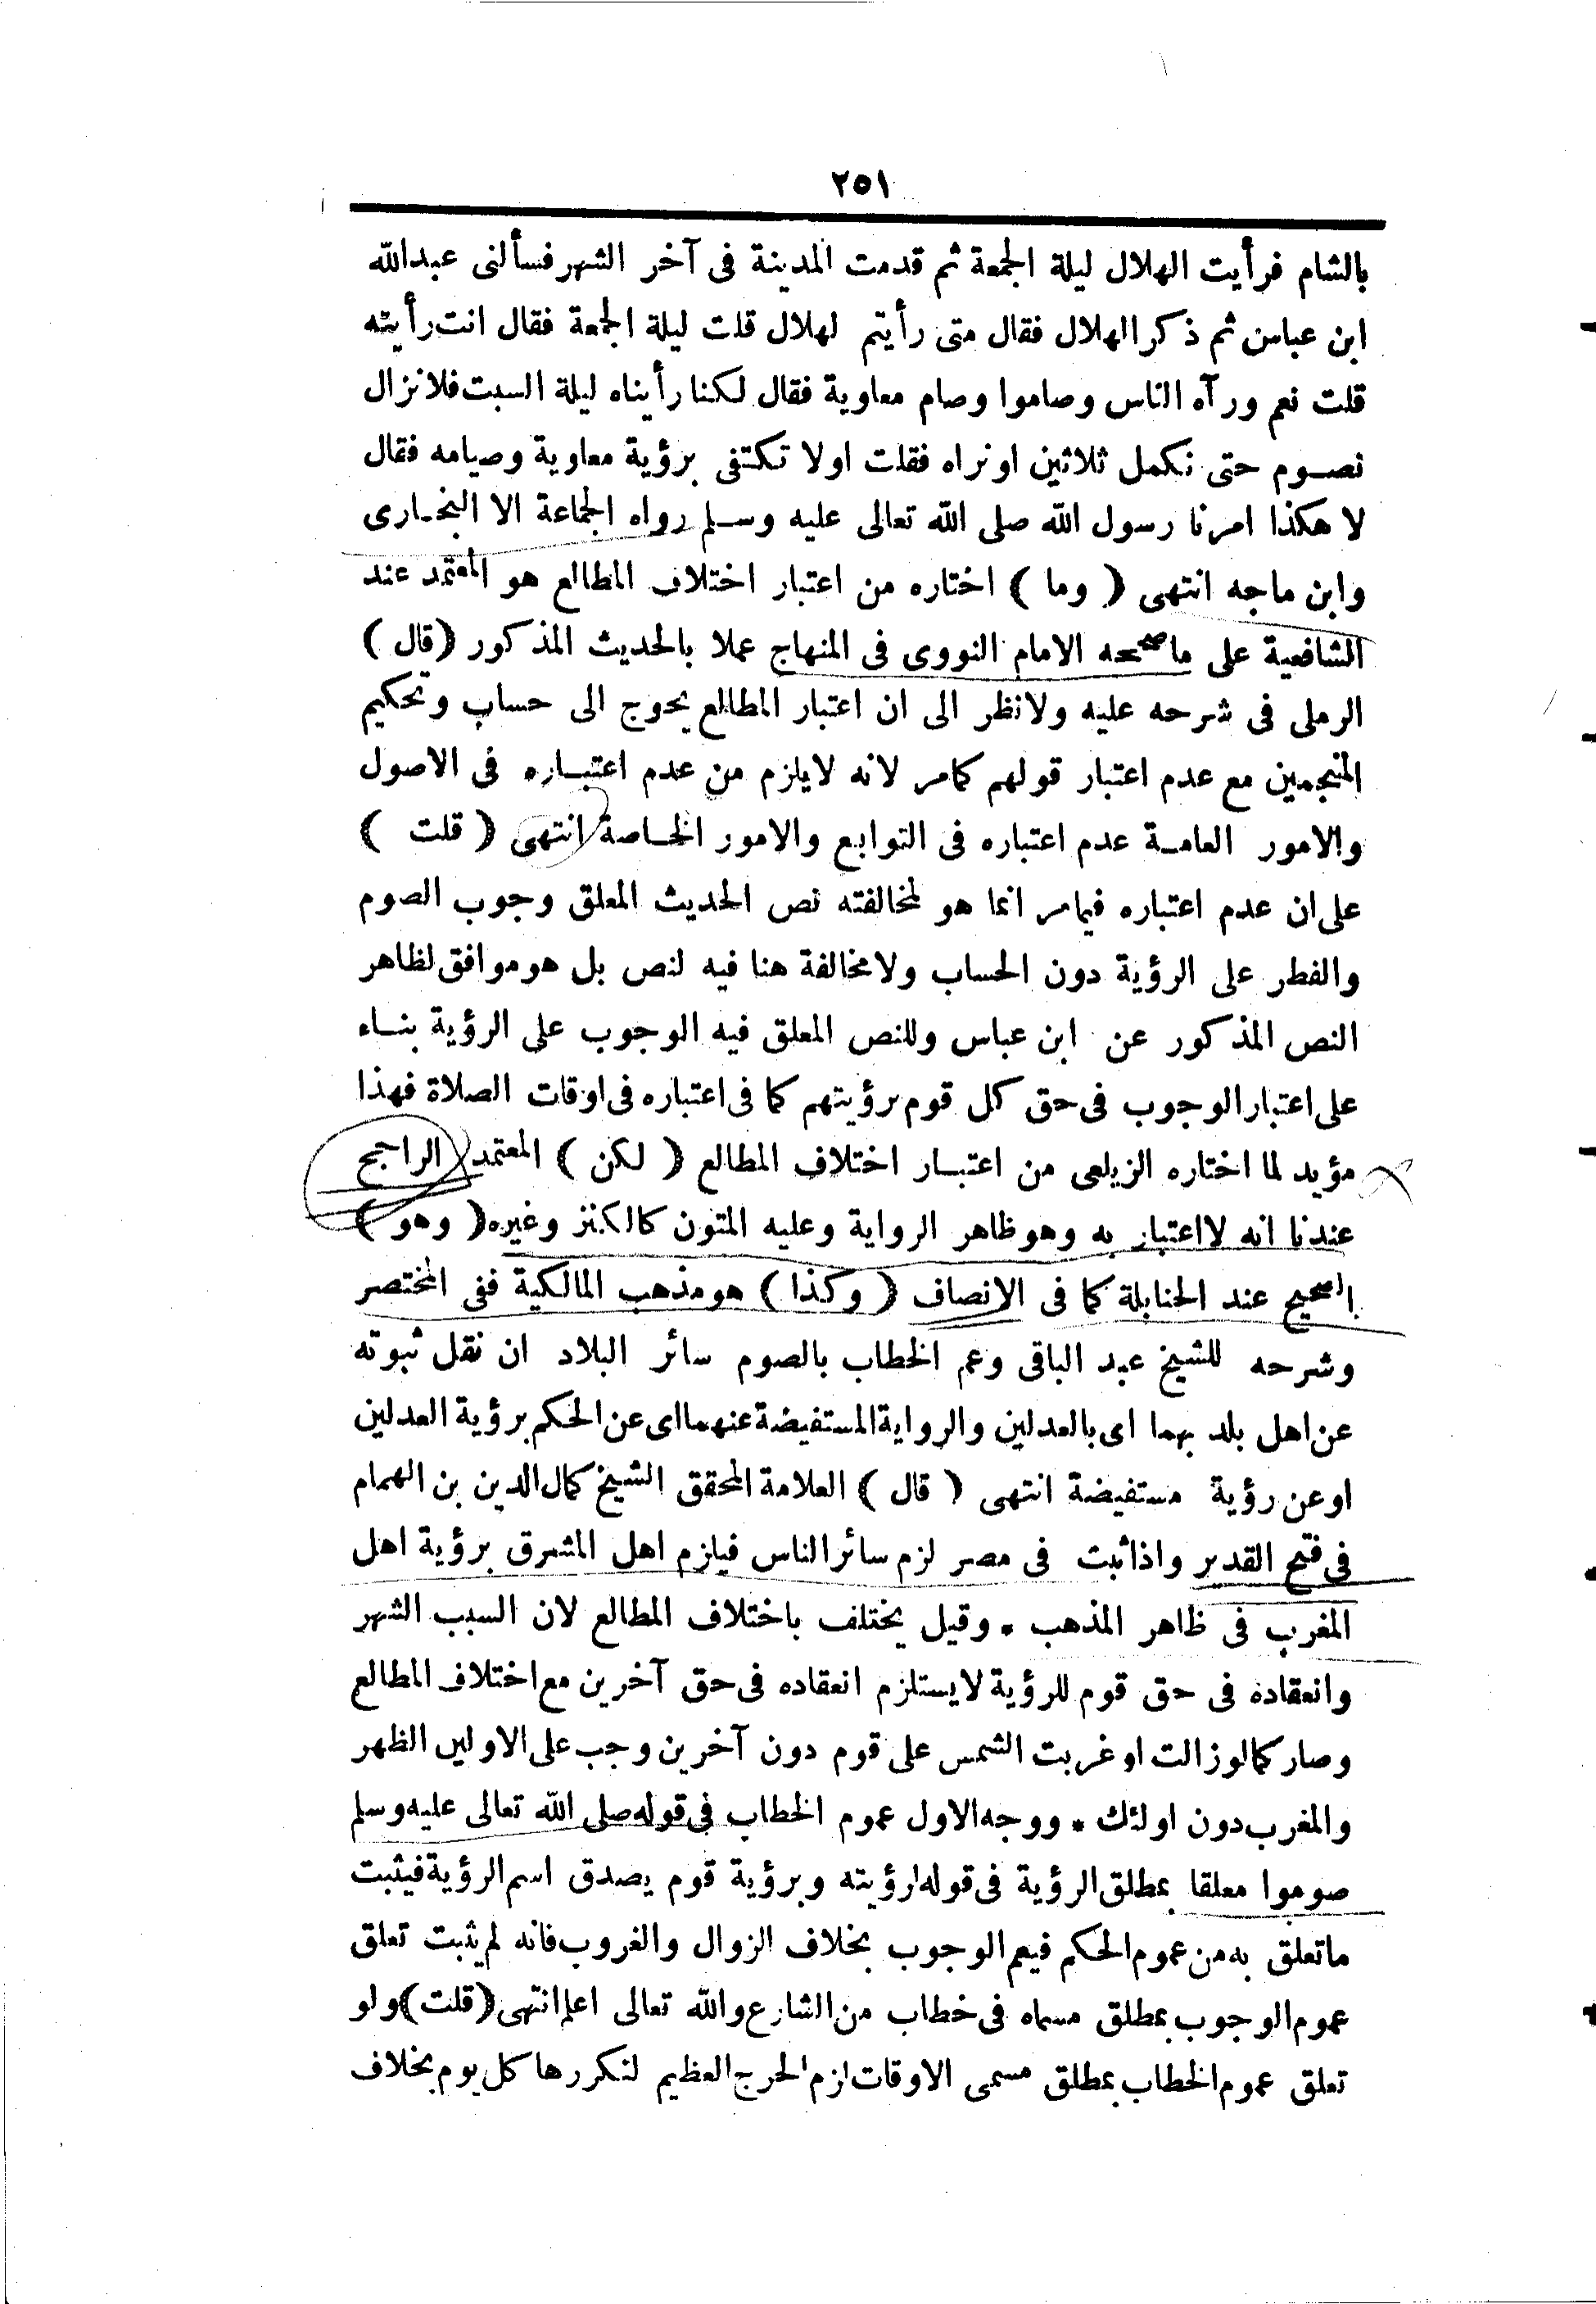 ٢٥١
بالشام فرأيت الهلال ليلة الجمعة ثم قدمت المدينة فى آخر الشهر فسألنى عبدالله
ابن عباس ثم ذكر الهلال فقال متى رأيتم لهلال قلت ليلة الجمعة فقال انت رأيته
قلت نعم ورآه الناس وصاموا وصام معاوية فقال لكنا رأيناه ليلة السبت فلا نزال
نصوم حتى نكمل ثلاثين او نراه فقلت اولا تكتفى برؤية معاوية وصيامه فقال
لا هكذا امرنا رسول الله صلى الله تعالى عليه وسلم رواه الجماعة الا البخارى
وابن ماجه انتهى ( وما ) اختاره من اعتبار اختلاف المطالع هو المعتمد عند
الشافعية على ماصححه الامام النووى فى المنهاج عملا بالحديث المذكور (قال )
الرملى فى شرحه عليه ولانظر الى ان اعتبار المطالع يحوج الى حساب وتحكيم
المنجمين مع عدم اعتبار قولهم كمامر لانه لايلزم من عدم اعتباره فى الاصول
والامور العامة عدم اعتباره فى التوابع والامور الخاصة انتهى ( قلت )
على ان عدم اعتباره فيمامر انما هو لمخالفته نص الحديث المعلق وجوب الصوم
والفطر على الرؤية دون الحساب ولامخالفة هنا فيه لنص بل هو موافق لظاهر
النص المذكور عن ابن عباس وللنص المعلق فيه الوجوب على الرؤية بناء
على اعتبار الوجوب فى حق كل قوم برؤيتهم كما فى اعتباره فى اوقات الصلاة فهذا
مؤيد لما اختاره الزيلعى من اعتبار اختلاف المطالع ( لكن ) المعتمد الراجح
عندنا انه لااعتبار به وهو ظاهر الرواية وعليه المتون كالكنز وغيره ( وهو )
الصحيح عند الحنابلة كما فى الانصاف ( وكذا ) هو مذهب المالكية ففى المختصر
وشرحه للشيخ عبد الباقى وعم الخطاب بالصوم سائر البلاد ان نقل ثبوته
عن اهل بلد بهما اى بالعدلين والرواية المستفيضة عنهما اى عن الحكم برؤية العدلين
او عن رؤية مستفيضة انتهى ( قال ) العلامة المحقق الشيخ كمال الدين بن الهمام
فى فتح القدير واذا ثبت فى مصر لزم سائر الناس فيلزم اهل المشرق برؤية اهل
المغرب فى ظاهر المذهب * وقيل يختلف باختلاف المطالع لان السبب الشهر
وانعقاده فى حق قوم للرؤية لايستلزم انعقاده فى حق آخرين مع اختلاف المطالع
وصار كمالو زالت او غربت الشمس على قوم دون آخرين وجب على الاولين الظهر
والمغرب دون اولئك * ووجه الاول عموم الخطاب فى قوله صلى الله تعالى عليه وسلم
صوموا معلقا بمطلق الرؤية فى قوله لرؤيته وبرؤية قوم يصدق اسم الرؤية فيثبت
ماتعلق به من عموم الحكم فيعم الوجوب بخلاف الزوال والغروب فانه لم يثبت تعلق
عموم الوجوب بمطلق مسماه فى خطاب من الشارع والله تعالى اعلم انتهى (قلت) ولو
تعلق عموم الخطاب بمطلق مسمى الاوقات لزم الحرج العظيم لتكررها كل يوم بخلاف